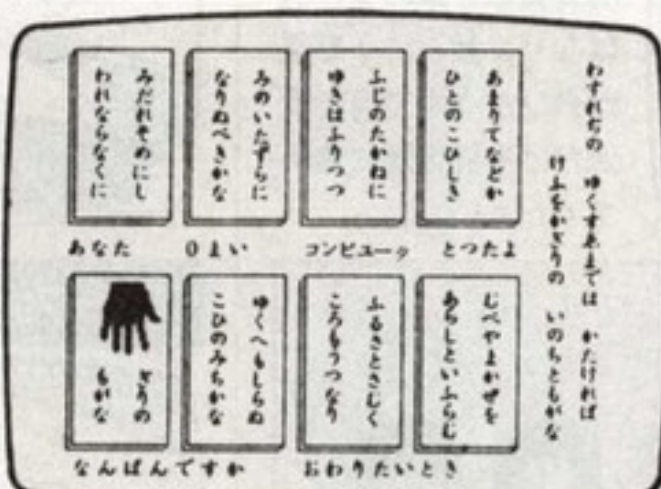 わすれぢの ゆくすゑまでは かたければ
けふをかぎりの いのちともがな
あまりてなどか
ひとのこひしき
ふじのたかねに
ゆきはふりつつ
みのいたずらに
なりぬべきかな
みだれそめにし
われならなくに
あなた 0まい コンピュータ とつたよ
むべやまかぜを
あらしといふらむ
ふるさとさむく
ころもうつなり
ゆくへもしらぬ
こひのみちかな
ぎりの
もがな
なんばんですか おわりたいとき